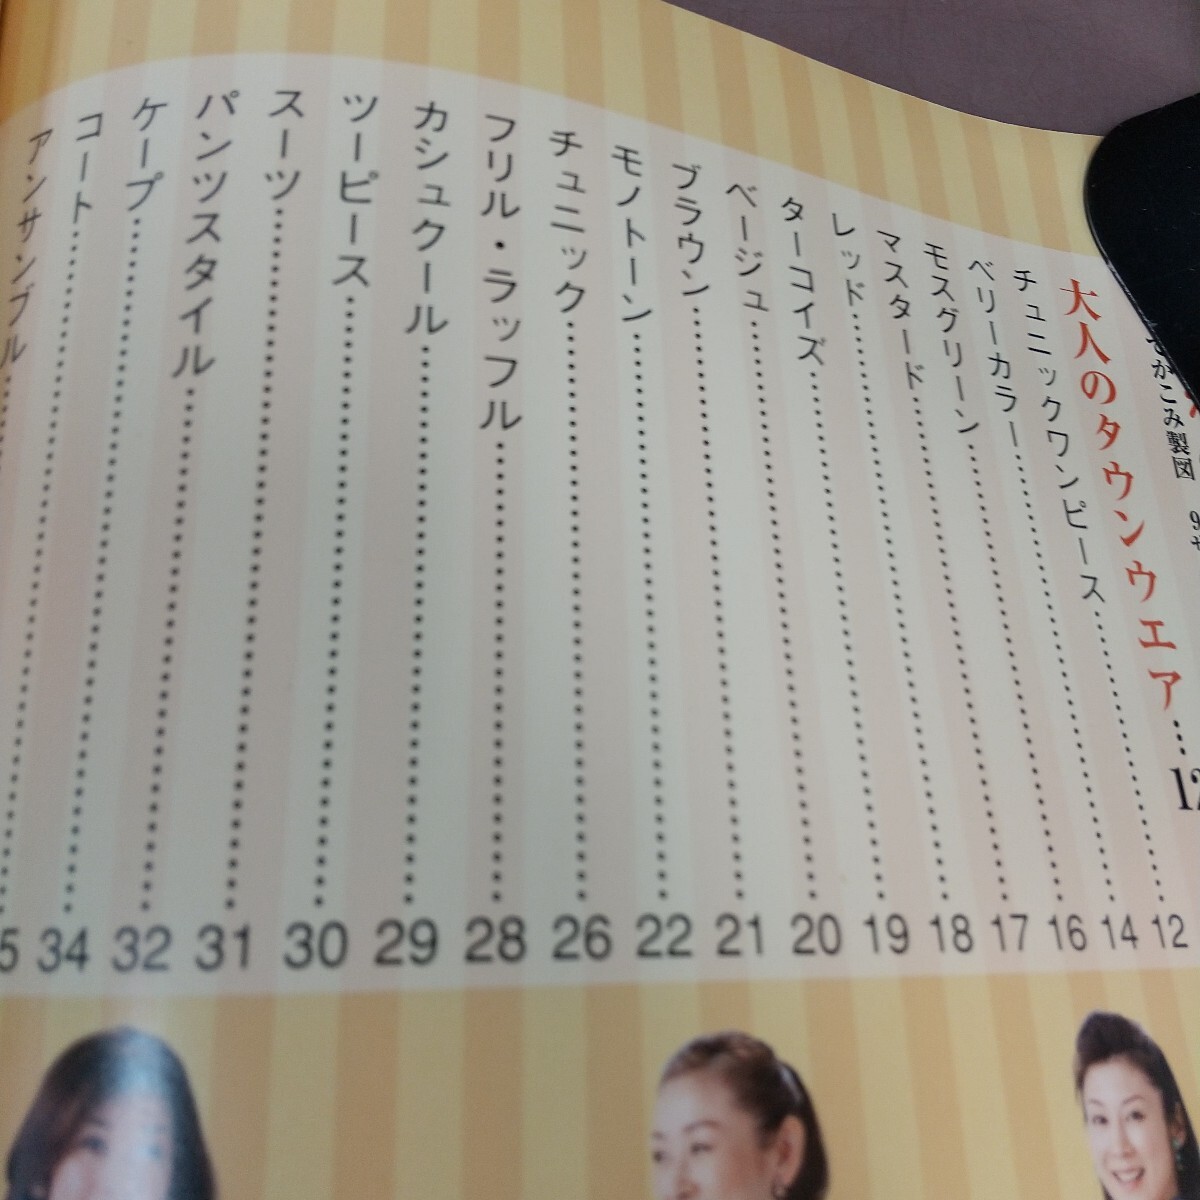 せかこみ製図
大人のタウンウエア…12
チュニックワンピース……12
ベリーカラー……14
モスグリーン……16
マスタード……17
レッド……18
ターコイズ……19
ベージュ……20
ブラウン……21
モノトーン……22
チュニック……26
フリル・ラッフル……28
カシュクール……29
ツーピース……30
スーツ……31
パンツスタイル……32
ケープ……34
コート……5
アンサンブル……